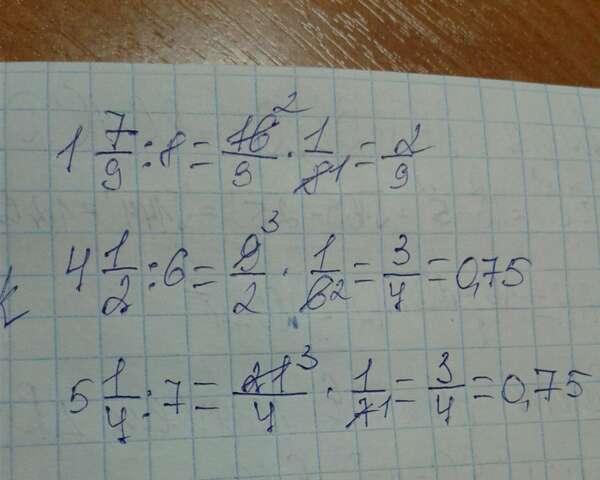 1 7/9 : 8 = 16²/9 · 1/81 = 2/9
4 1/2 : 6 = 9³/2 · 1/62 = 3/4 = 0,75
5 1/4 : 7 = 21³/4 · 1/71 = 3/4 = 0,75